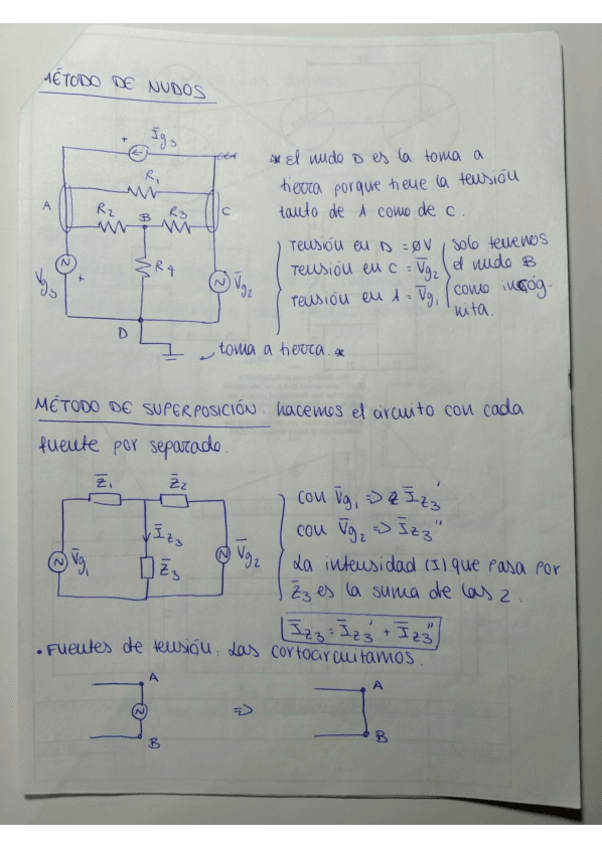 MÉTODO DE NUDOS
+ Īg₃
R₁
A R₂ B R₃ C
R₄
V̄g₃ + V̄g₂
D
toma a tierra. *
* El nudo D es la toma a
tierra porque tiene la tensión
tanto de A como de C.
Tensión en D = 0V
Tensión en C = V̄g₂
Tensión en A = V̄g₁
solo tenemos
el nudo B
como incóg-
nita.
MÉTODO DE SUPERPOSICIÓN. hacemos el circuito con cada
fuente por separado.
Z̄₁ Z̄₂
V̄g₁ Īz₃ Z̄₃ V̄g₂
con V̄g₁ => Īz₃'
con V̄g₂ => Īz₃''
La intensidad (I) que pasa por
Z̄₃ es la suma de las 2.
Īz₃ = Īz₃' + Īz₃''
• Fuentes de tensión. Las cortocircuitamos.
A => A
B B